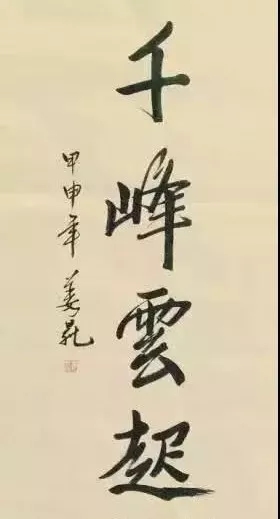 千峰雲起
甲申年姜昆